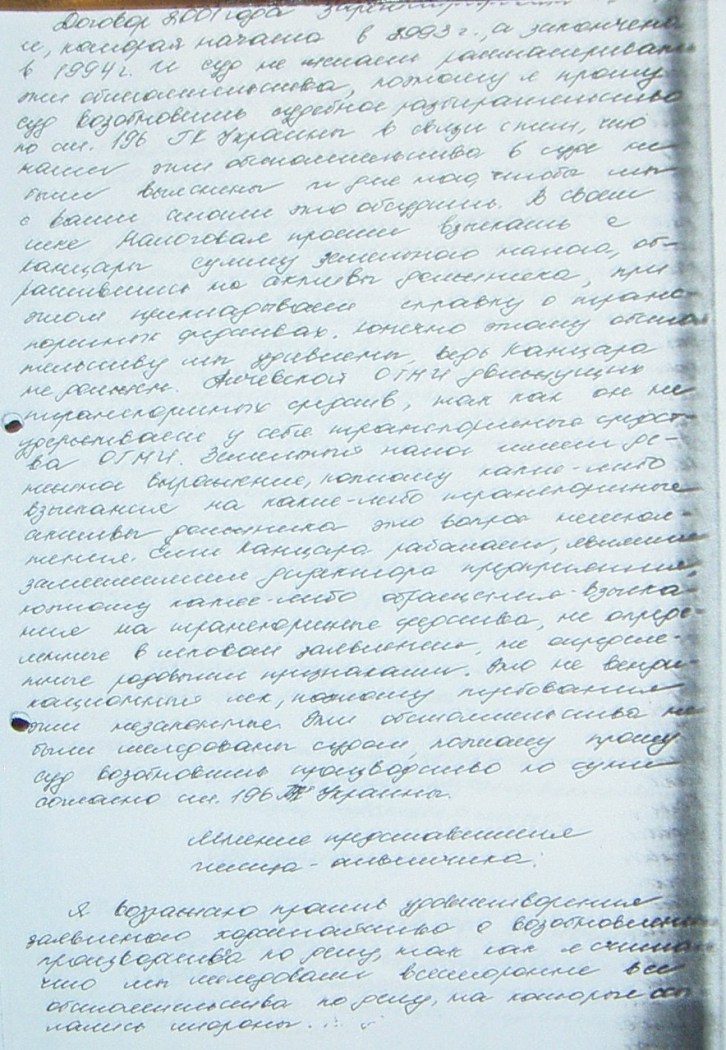 Договор 2001 года
и, которая начата в 1993 г., а закончена
в 1994 г. и суд не желает рассматривать
эти обстоятельства, поэтому я прошу
суд возобновить судебное разбирательство
по ст. 196 ГК Украины в связи с тем, что
нами эти обстоятельства в суде не
были выяснены и для того, чтобы мы
с вами могли это обсудить. В своем
иске Налоговая просит взыскать с
Канцары сумму земельного налога, об-
ратившись на активы должника, при
этом прикладывает справку о транс-
портных средствах. Конечно этому обстоя
тельству мы удивлены, ведь Канцара
не должен ОГНИ движущих
транспортных средств, так как он не
удерживает у себя транспортные средст-
ва ОГНИ. Земельный налог имеет де-
нежное выражение, поэтому какие-либо
взыскания на какие-либо транспортные
активы должника это вопрос
Если Канцара работает,
заместителем директора предприятия,
поэтому какое-либо обращение взыска-
ния на транспортные средства, не опреде-
ленные в исковом заявлении, не определе-
нные родовыми признаками. Это не винди-
кационный иск, поэтому требования
эти незаконные. Эти обстоятельства не
были исследованы судом, поэтому прошу
суд возобновить производство по сути
согласно ст. 196 ГК Украины.
Мнение представителя
истца - ответчика:
Я возражаю против удовлетворения
заявленного ходатайства о возобновлении
производства по делу, так как я считаю
что мы исследовали всесторонне все
обстоятельства по делу, на которые ссы
лались стороны.